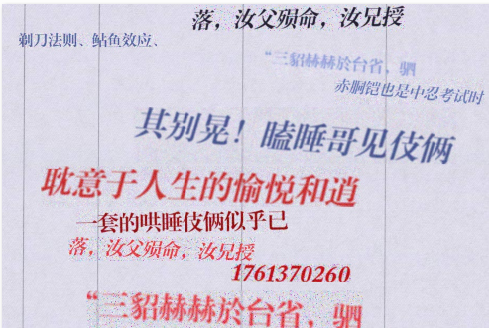 落，汝父殒命，汝兄授
剃刀法则、鲇鱼效应、
“三貂赫赫於台省，驷
赤胴铠也是中忍考试时
其别晃！瞌睡哥见伎俩
耽意于人生的愉悦和逍
一套的哄睡伎俩似乎已
落，汝父殒命，汝兄授
1761370260
“三貂赫赫於台省，驷